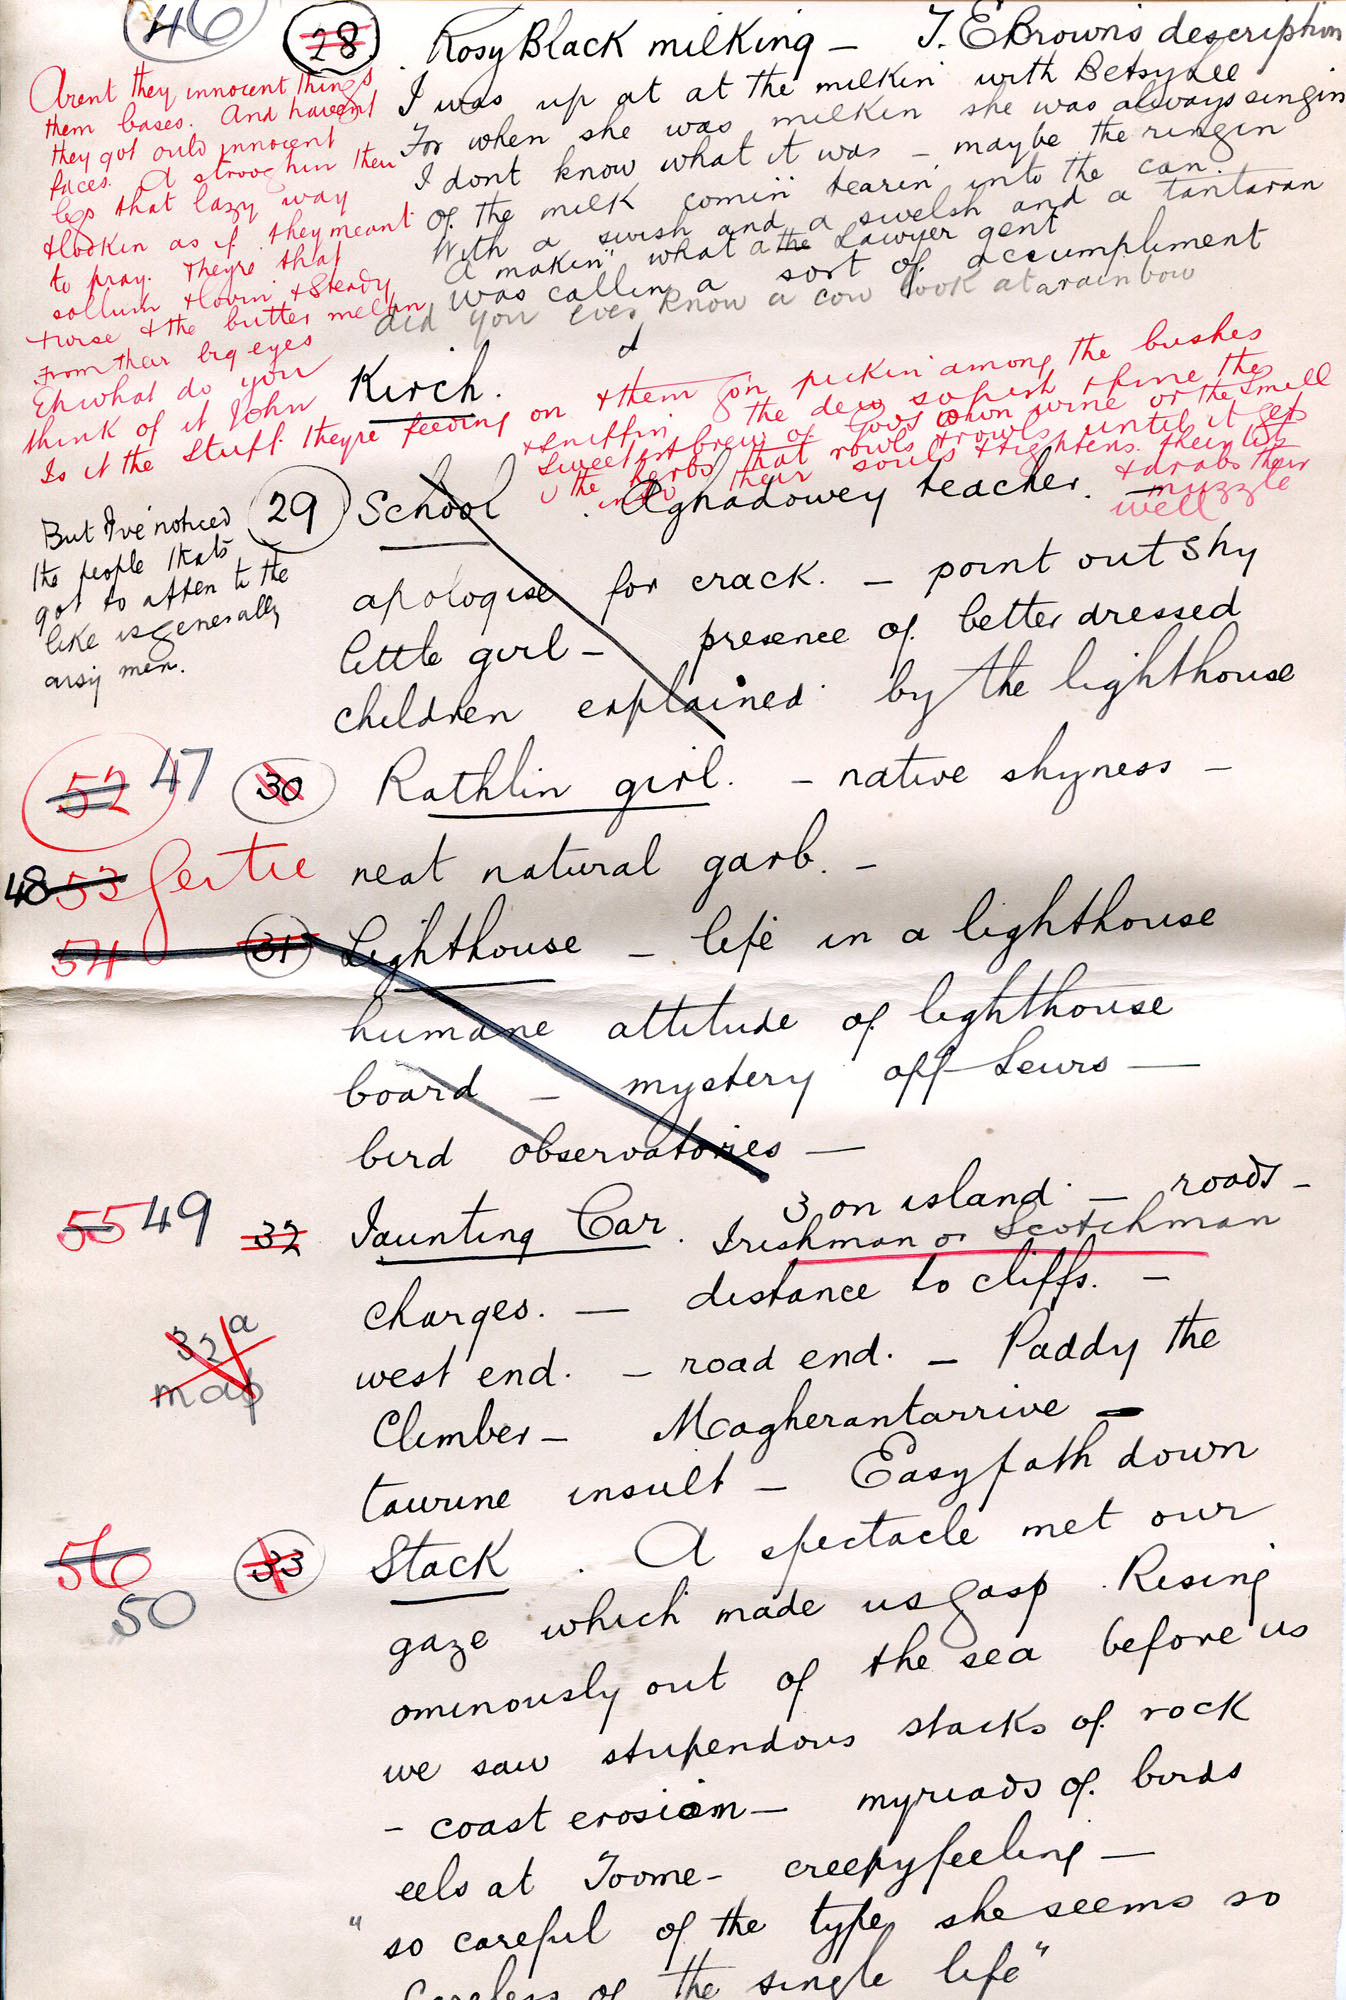 46 28. Rosy Black milking – T. E Brown's description
I was up at at the milkin' with Betsy Lee
For when she was milkin she was always singin
I dont know what it was – maybe the ringin
of the milk comin' tearin' into the can.
With a swish and a swelsh and a tantaran
A makin' what a the Lawyer gent
was callin a sort of accumpliment
did you ever know a cow look at a rainbow
Arent they innocent things
them bases. And havent
they got ould innocent
faces. A strooghin their
legs that lazy way
& lookin as if they meant
to pray. Theyre that
sollum & lovin & steady
& the butter meltin
From their big eyes
Eh what do you
think of it John
Is it the stuff theyre feeding on
& them goin pickin' among the bushes
& sniffin the dew
sweetest brew of God's own wine or the smell
the herbs that rowls & rowls until it gets
into their souls & tightens
& drabs their
muzzle
well
Kirch.
29 School. Aghadowey teacher. –
apologise for crack. – point out shy
little girl – presence of better dressed
children explained by the lighthouse
But I've noticed
the people thats
got to atten to the
like is generally
aisy men.
52 47 30 Rathlin girl. – native shyness –
48 53 Gertie neat natural garb. –
54 31 Lighthouse – life in a lighthouse
humane attitude of lighthouse
board – mystery off Lewis –
bird observatories –
55 49 32 Jaunting Car. 3 on island – roads –
Irishman or Scotchman
charges. – distance to cliffs. –
32a
map
west end. – road end. – Paddy the
Climber – Magherantarrive –
taurine insult – Easy path down
56 50 33 Stack. A spectacle met our
gaze which made us gasp. Rising
ominously out of the sea before us
we saw stupendous stacks of rock
– coast erosion – myriads of birds
eels at Toome – creepy feeling –
"so careful of the type she seems so
Careless of the single life"